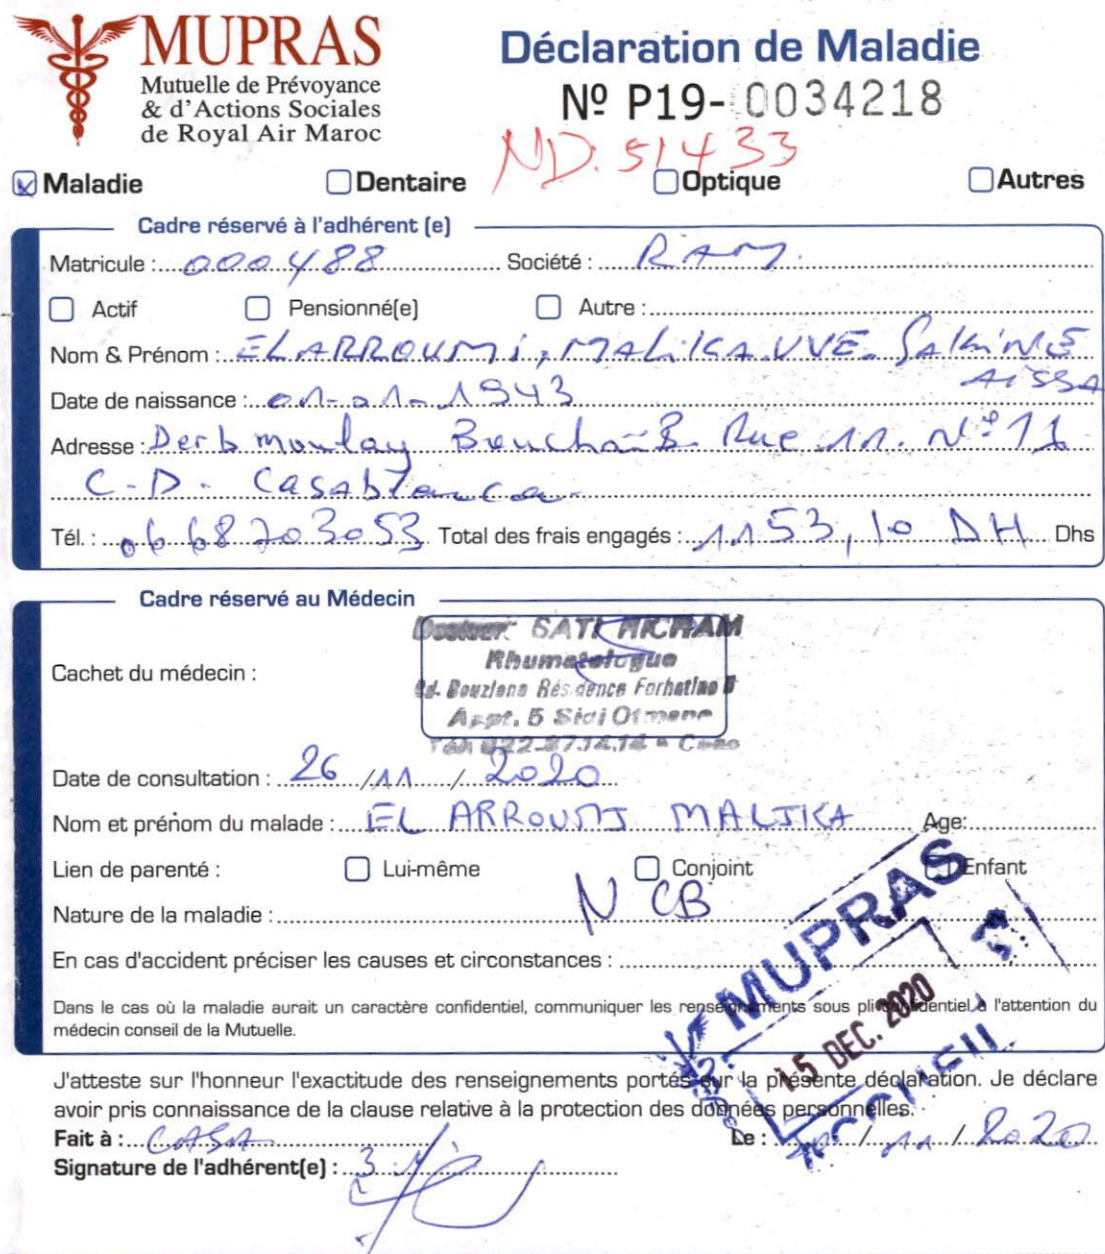 MUPRAS
Mutuelle de Prévoyance
& d'Actions Sociales
de Royal Air Maroc
Déclaration de Maladie
Nº P19- 0034218
ND. 51433
Maladie Dentaire Optique Autres
Cadre réservé à l'adhérent (e)
Matricule : 000488 Société : RAM
Actif Pensionné(e) Autre :
Nom & Prénom : ELARROUMI, MALIKA.VVE. SAKINE
AISSA
Date de naissance : 01-01-1943
Adresse : Derb moulay Bouchaib Rue 11. N° 11
C.D. Casablanca
Tél. : 0668703053 Total des frais engagés : 1153,10 DH Dhs
Cadre réservé au Médecin
Docteur SATI HICHAM
Rhumatologue
Bd. Bouziane Résidence Forhatine
Appt. 5 Sidi Otmane
Tél: 022-37.14.14 - Casa
Cachet du médecin :
Date de consultation : 26 /11 / 2020
Nom et prénom du malade : EL ARROUMI MALIKA Age:
Lien de parenté : Lui-même Conjoint Enfant
Nature de la maladie : NCB
En cas d'accident préciser les causes et circonstances :
Dans le cas où la maladie aurait un caractère confidentiel, communiquer les renseignements sous pli confidentiel à l'attention du
médecin conseil de la Mutuelle.
MUPRAS
15 DEC. 2020
ACCUEIL
J'atteste sur l'honneur l'exactitude des renseignements portés sur la présente déclaration. Je déclare
avoir pris connaissance de la clause relative à la protection des données personnelles.
Fait à : CASA Le : / 11 / 2020
Signature de l'adhérent(e) :